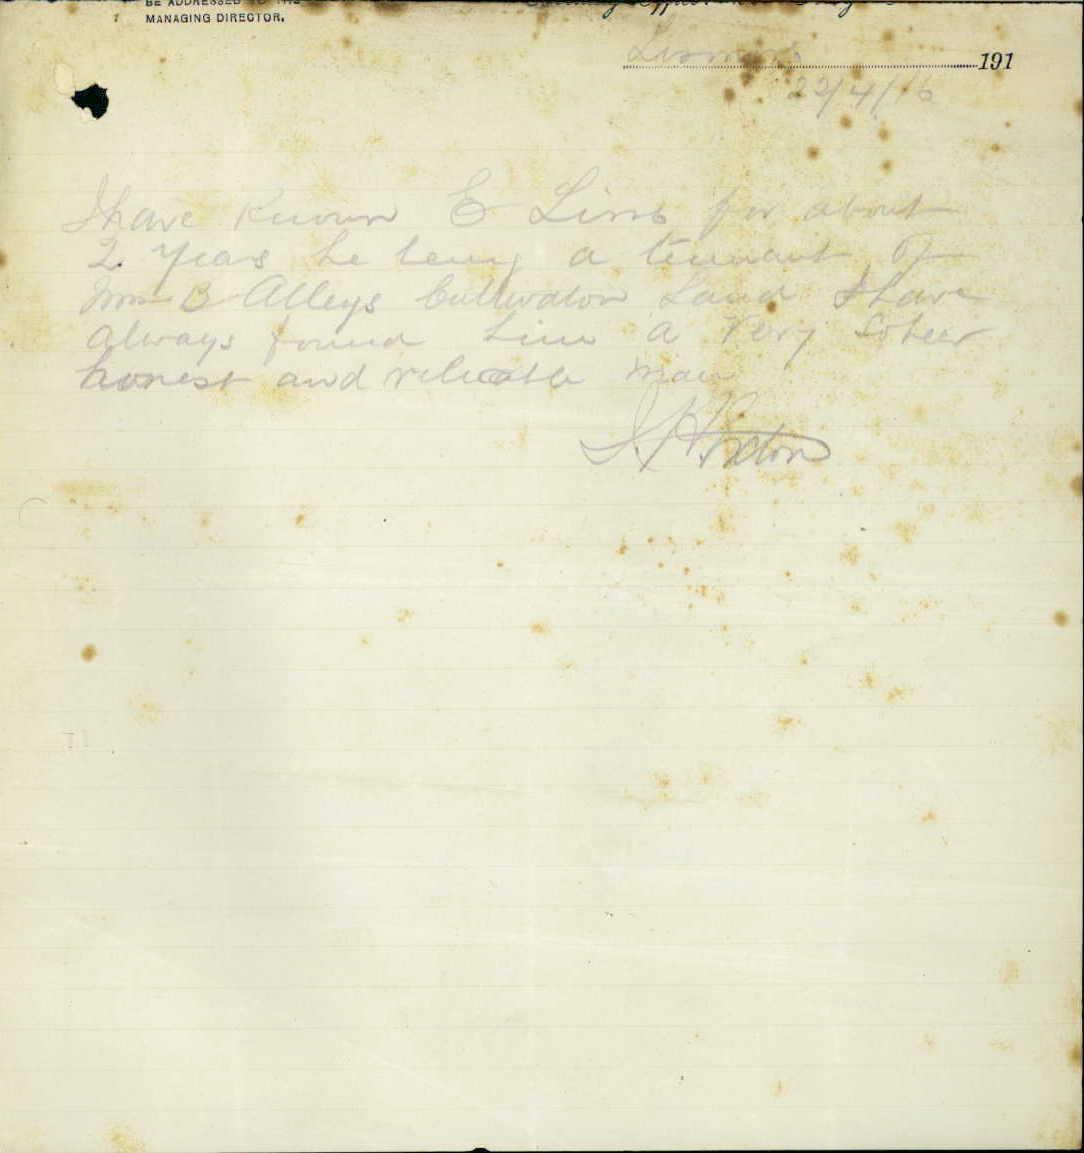 BE ADDRESSED TO THE
MANAGING DIRECTOR.
Lismore 191
22/4/16
I have Known E Lims for about
2 Years he being a tennant of
Mrs B Alleys Cultivation Land I have
always found him a Very Sober
honest and reliable man